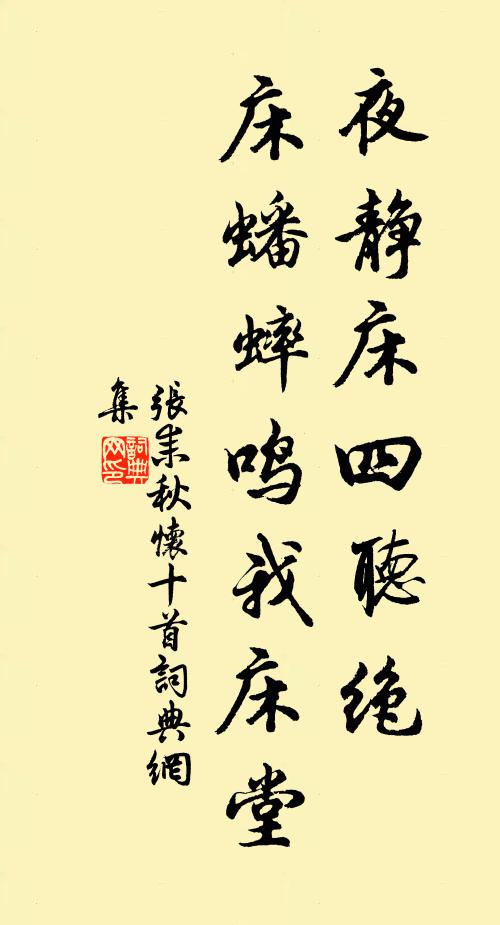 夜静床四聽绝
床蟠蟀鸣我床堂
張耒秋懷十首詞典網
集
詞典网印